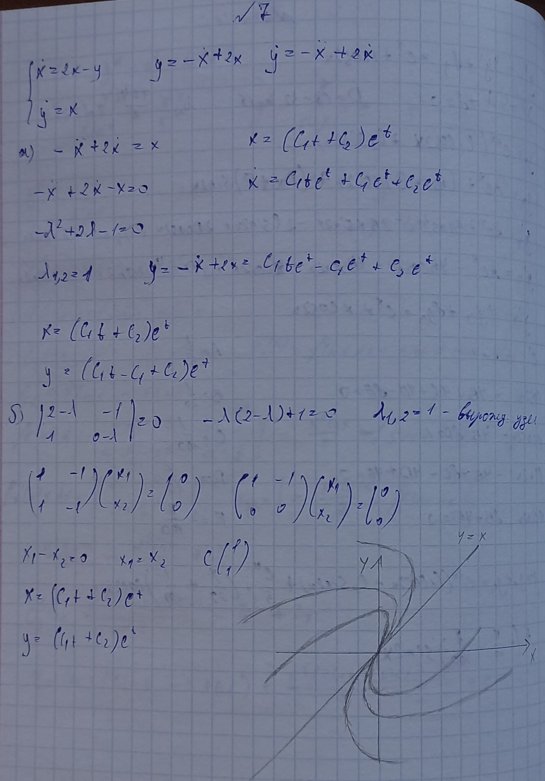 √7
{ẋ = 2x - y   y = -ẋ + 2x   ẏ = -ẍ + 2ẋ
ẏ = x
а) -ẍ + 2ẋ = x   x = (C₁t + C₂)eᵗ
-ẍ + 2ẋ - x = 0   ẋ = C₁teᵗ + C₁eᵗ + C₂eᵗ
-λ² + 2λ - 1 = 0
λ₁,₂ = 1   y = -ẋ + 2x = C₁teᵗ - C₁eᵗ + C₂eᵗ
x = (C₁t + C₂)eᵗ
y = (C₁t - C₁ + C₂)eᵗ
б) |2-λ  -1; 1  0-λ| = 0   -λ(2-λ)+1=0   λ₁,₂ = 1 - вырожд узел
(1 -1; 1 -1)(x₁; x₂) = (0; 0)   (1 -1; 0 0)(x₁; x₂) = (0; 0)
x₁ - x₂ = 0   x₁ = x₂   C(1; 1)
x = (C₁t + C₂)eᵗ
y = (C₁t + C₂)eᵗ
y = x
y
x